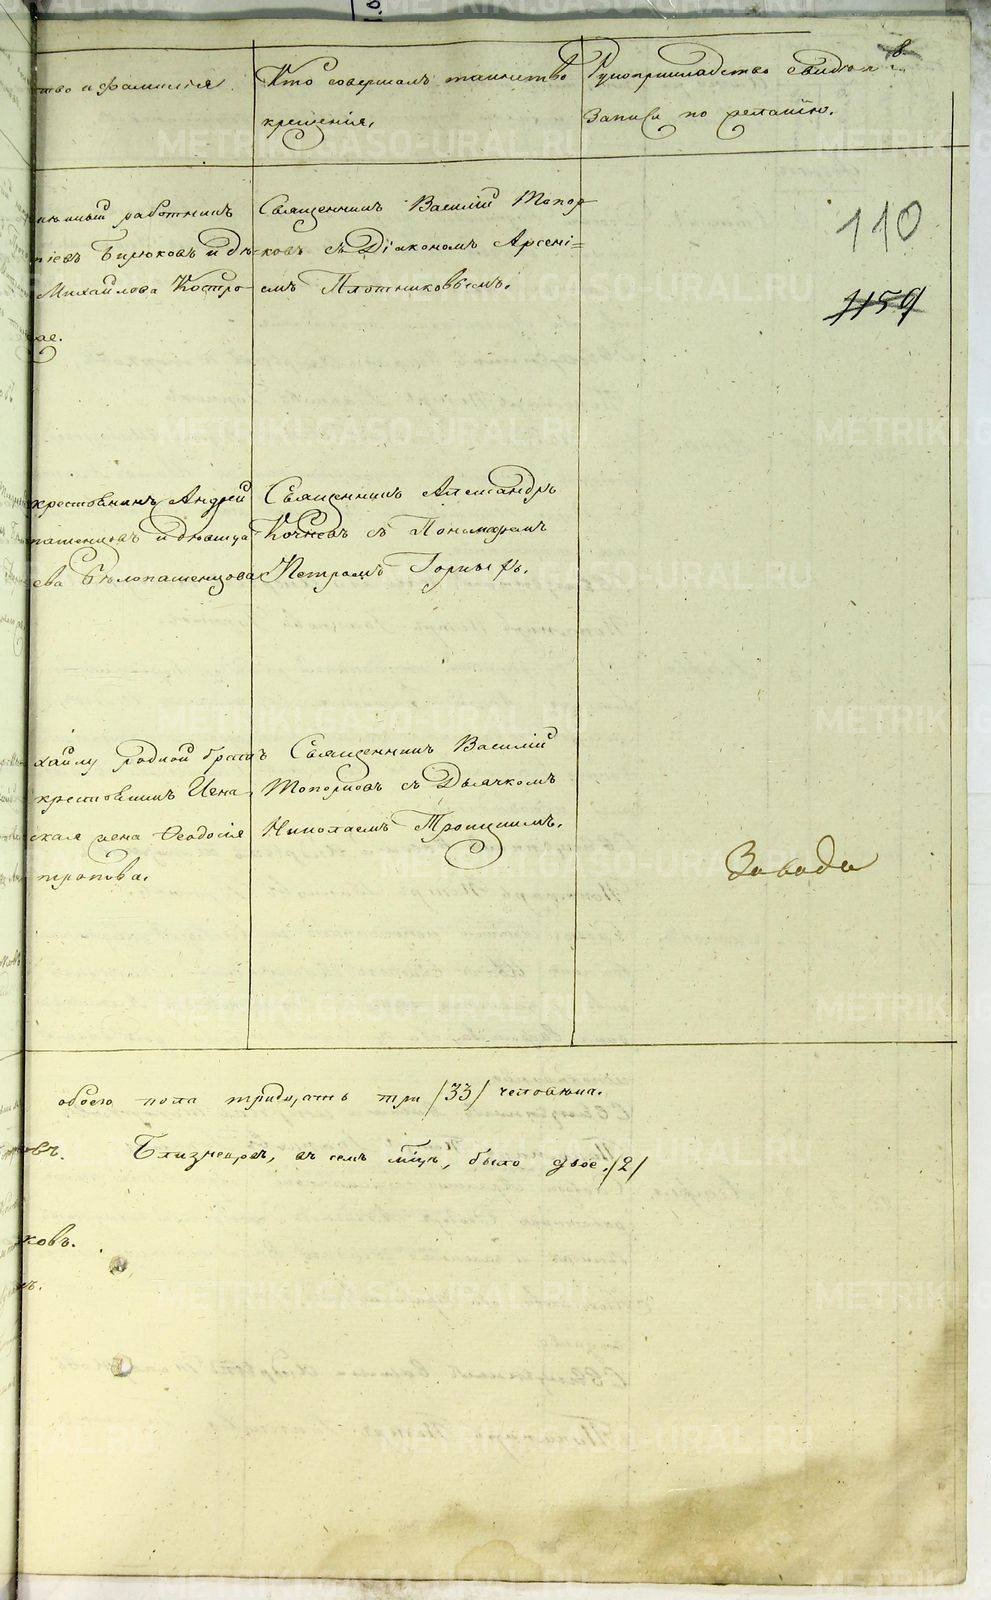 тво и фамилія.
Кто совершалъ таинство
крещенія,
Рукоприкладство свидѣт
записи по желанію.
8.
110
1159
работникъ
Бирюковъ и дѣ=
Михайлова Костро
ае.
Священникъ Василій Топор
ковъ съ Діакономъ Арсені=
емъ Плотниковымъ.
крестьянинъ Андрей
пашенцовъ и дѣвица
ева Бѣлопашенцова
Священникъ Александръ
Кочневъ съ Пономаремъ
Петромъ Горныхъ.
хайлу родной братъ
крестьянинъ
ская жена Ѳеодосія
тропова.
Священникъ Василій
Топорковъ съ Дьячкомъ
Николаемъ Троицкимъ.
Завода
обоего пола тридцать три /33/ человѣка.
овъ.
Близнецовъ, въ семъ мцѣ, было двое. /2/
ковъ.
ъ.
METRIKI.GASO-URAL.RU